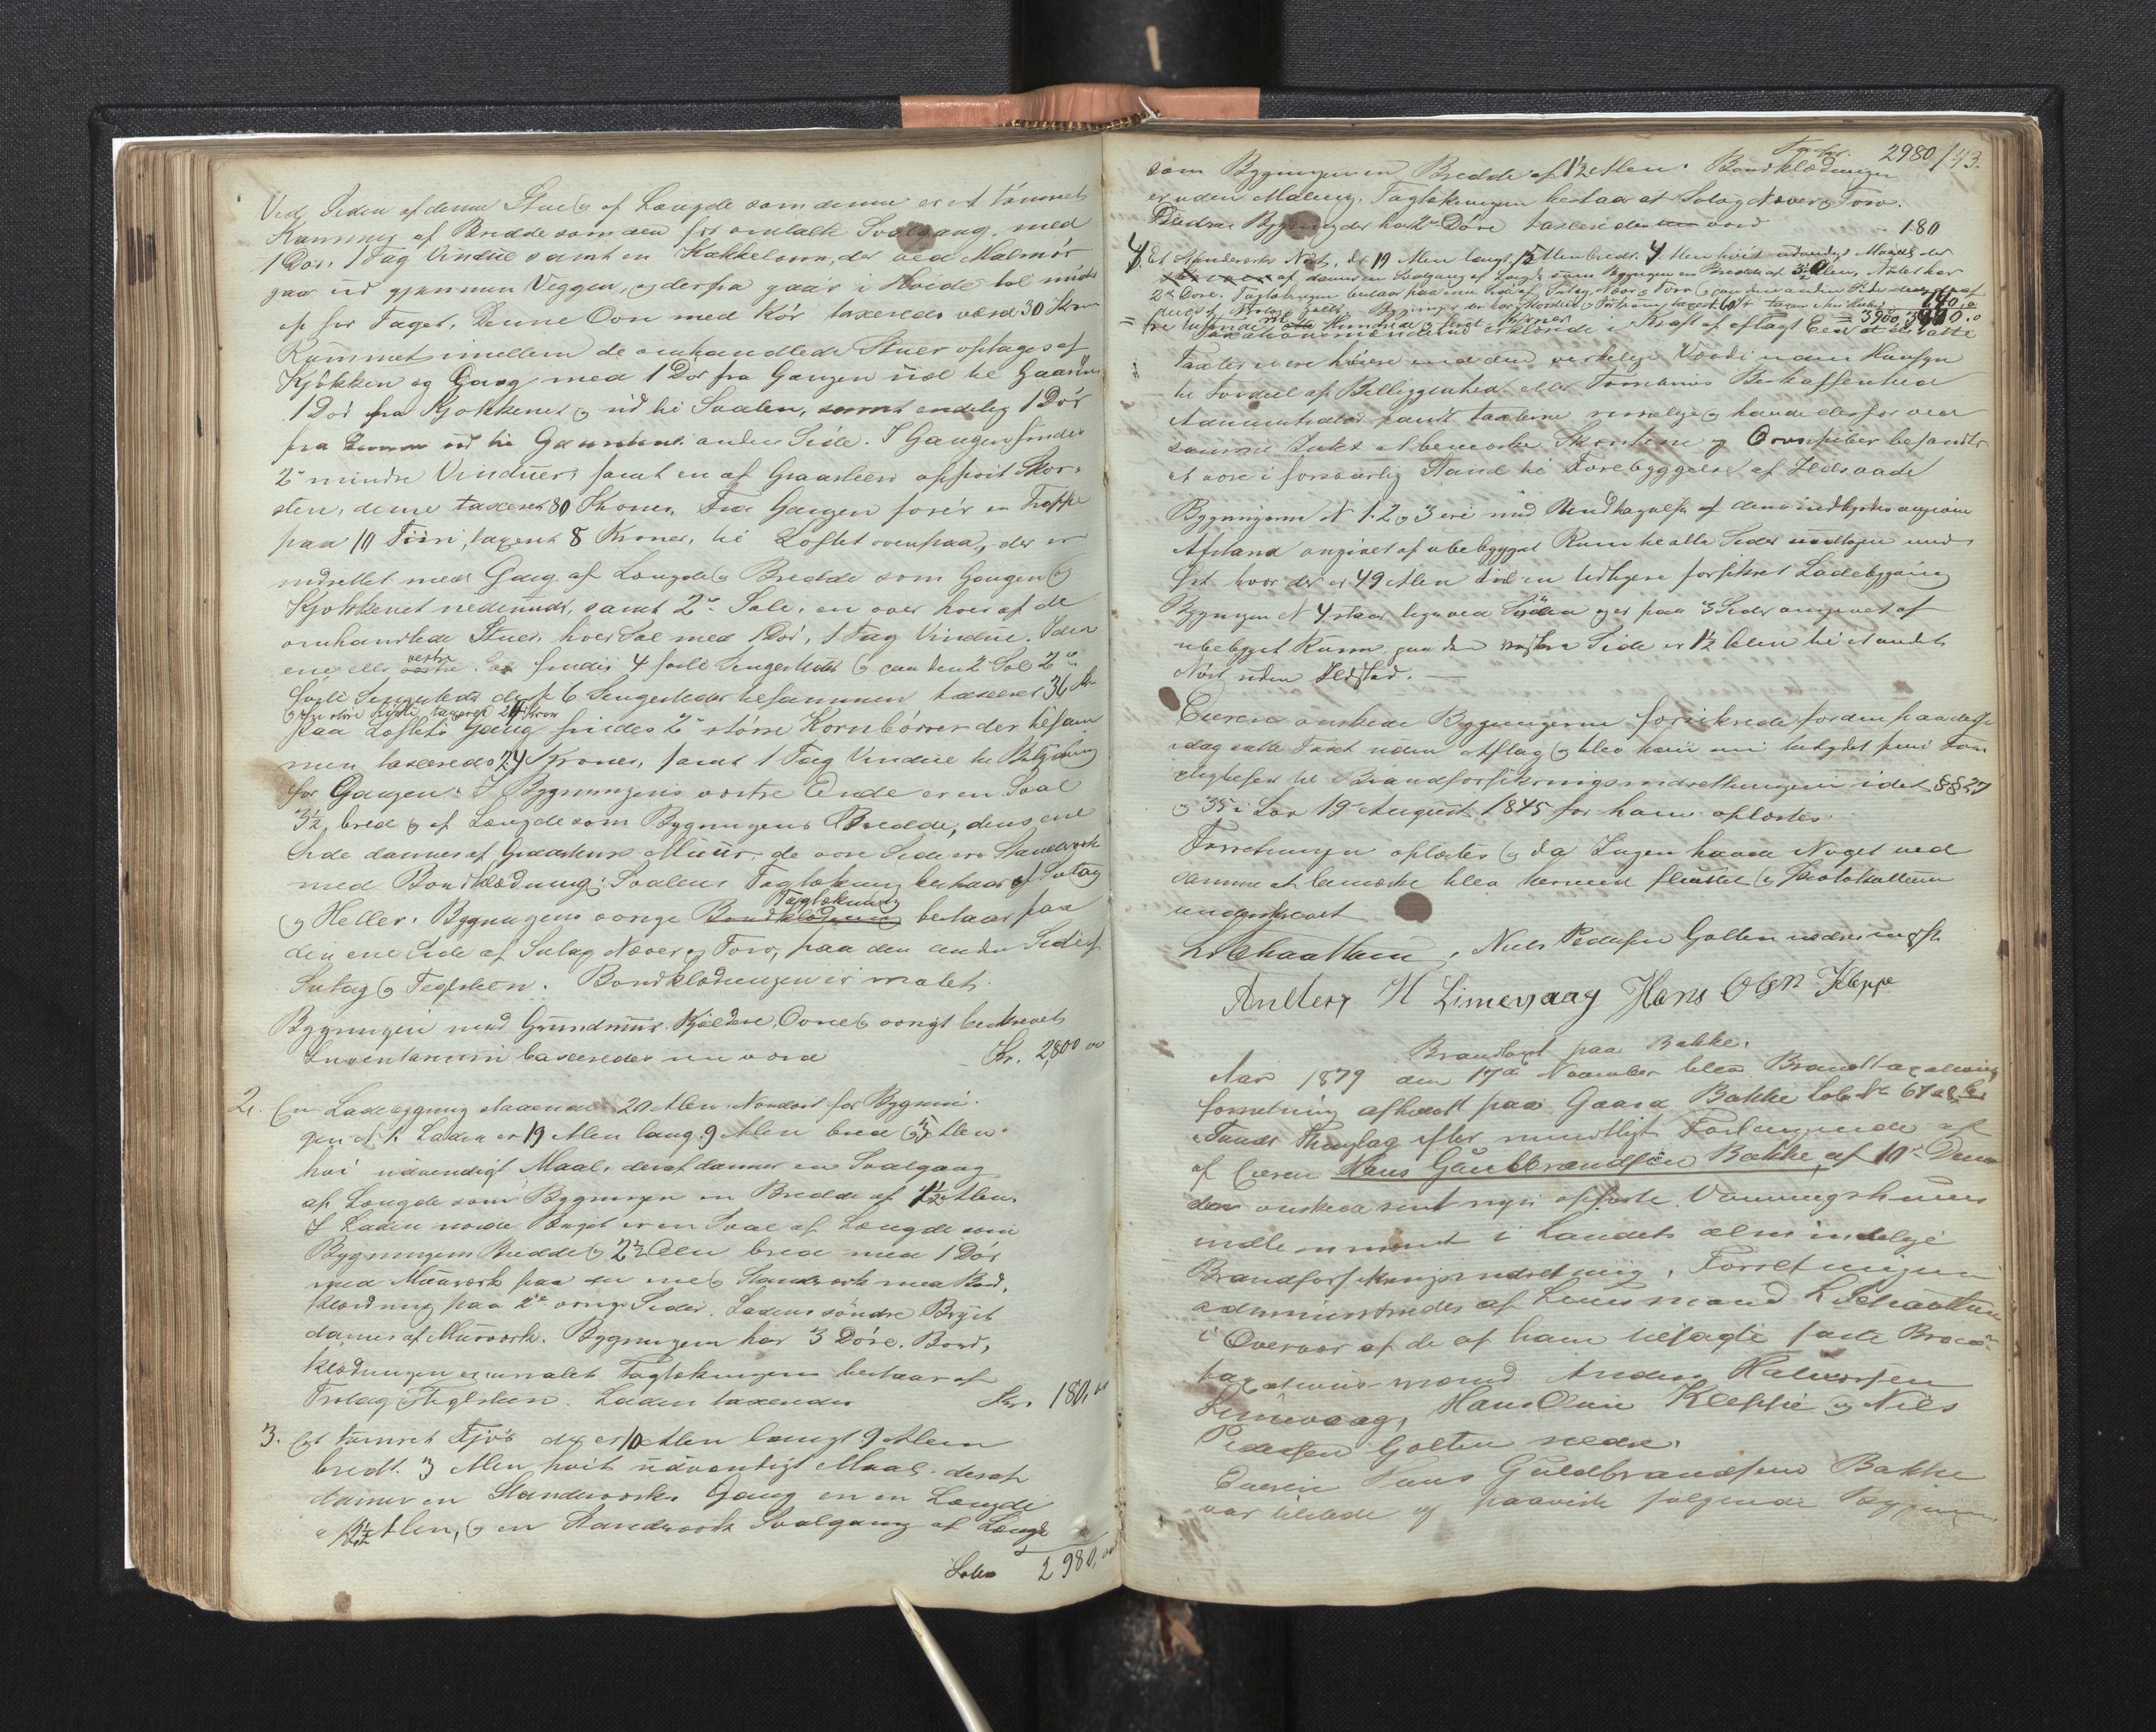 Ved Siden af denne Stue og af Længde som denne er et tømret
Kammer af Bredde som den før omtalte Svalgang, med
1 Dør, 1 Fag Vindue samt en Kakkelovn, der ved Malmrør
gaar ud gjennem Veggen, og derfra gaar i Høide til midt
op for Taget. Denne Ovn med Rør taxeredes værd 30 Kron
Rummet imellem de omhandlede Stuer optages af
Kjøkken og Gang med 1 Dør fra Gangen ud til Gaarden
1 Dør fra Kjøkkenet og ud til Svalen, samt endelig 1 Dør
fra ud til anden Side. I Gangen findes
2de mindre Vinduer, samt en af Graasteen opført Skor-
sten, denne taxeret 80 Kroner. Fra Gangen fører en Trappe
paa 10 Trin, taxeret 8 Kroner, til Loftet ovenpaa, der er
indrettet med Gang af Længde og Bredde som Gangen og
Kjøkkenet nedenunder, samt 2de Sale, en over hver af de
omhandlede Stuer, hver Sal med 1 Dør, 1 Fag Vindue. I den
ene eller vestre Sal findes 4 faste Sengesteder og i den 2 Sal 2de
faste Sengesteder disse 6 Sengesteder tilsammen taxeret 36 Kr
taxeret 24 Kron
Paa Loftets Gang findes 2de større Kornbørrer der tilsam
men taxeredes 24 Kroner, samt 1 Fag Vindue til Belysning
for Gangen. I Bygningens østre Ende er en Sval
3½ bred og af Længde som Bygningens Bredde, dens ene
Side dannes af Graastens Muur, de øvre Sider ere Standværk
med Bordklædning. Svalens Taglækning bestaar af Sutag
og Heller. Bygningens øvrige Bordklædning Taglækning bestaar paa
den ene Side af Sutag Næver og Torv, paa den anden Side af
Sutag og Teglsteen. Bordklædningen er malet.
Bygningen med Grundmuur, Kjælder, Ovne og øvrigt beskrevet
Inventarium taxeredes nu værd Kr. 2,800 00
2. En Ladebygning staaende 20 Alen Nordost for Bygnin-
gen No 1. Laden er 19 Alen lang 9 Alen bred og 5 Alen
høi udvendigt Maal, deraf danner en Svalgang
af Længde som Bygningen en Bredde af 1½ Alen.
I Laden nordre Ende er en Sval af Længde som
Bygningens Bredde og 2½ Alen bred med 1 Dør
med Muurværk paa en ene og Standværk med Bord-
klædning paa 2de øvrige Sider. Ladens søndre Bryst
dannes af Muurværk. Bygningen har 3 Døre. Bord-
klædningen er umalet Taglækningen bestaar af
Troelag og Teglsteen. Laden taxeredes Kr. 180,00
3. Et tømret Fjøs der er 10 Alen langt 9 Alen
bredt 3 Alen høit udvendigt Maal, deraf
danner en Standværks Gang en en Længde
af 1½ Alen, og en Standværks Svalgang af Længde
Latus 2980,00
Transp. 2980 / 43.
som Bygningen en Bredde af 1½ Alen. Bordklædningen
er uden Maling. Taglækningen bestaar af Sutag Næver og Torv.
Denne Bygning der har 2de Døre taxeredes værd 180
4. Et Standværks Nøst, der 19 Alen langt, 5 Alen bredt, 4 Alen høit udvendigt Maal, der
af danner en Svalgang af Længde som Bygningen en Bredde af 3 Alen, Nøstet har
2de Døre. Taglækningen bestaar paa ene Side af Sutag, Næver og Torv og paa den anden Side
tre Tusinde Hundrede og Kroner
Taxationsmændene erklærede i Kraft af aflagt Eed at de satte
Taxter ei ere høiere end den virkelige Værdi uden Hensyn
til Fordeel af Beliggenhed eller Tomtens Beskaffenhed
Administrator fandt taxterne rimelige og havde derfor ved
samme Intet at bemærke Skorstene og Ovnspiber befandtes
at være i forsvarlig Stand til Forebyggelse af Ildsvaade
Bygningerne No 1. 2 og 3 ere med Undtagelse af deres indbyrdes angivne
Afstand omgivet af ubebygget Rum til alle Sider undtagen mod
Øst hvor der er 49 Alen til en tidligere forsikret Ladebygning
Bygningen No 4 staar lige ved Søen og er paa 3 Sider omgivet af
ubebygget Rum, paa den vestre Side er 1½ Alen til et andet
Nøst uden Ildsted.
Eieren ønskede Bygningerne forsikrede for den paa disse
idag satte Taxt uden Aftag og blev han nu betydet sine For
pligtelser til Brandforsikringsindretningen idet §§ 27
og 35 i Lov 19de August 1845 for ham oplæstes.
Forretningen oplæstes og da Ingen havde Noget ved
samme at bemærke blev hermed sluttet og Protokollen
underskrevet
L Schaathun, Niels Pedersen Golten nedre
Anders H Limevaag Hans Olsen Kleppe
Brandtaxt paa Bakke.
Aar 1879 den 17de November blev Brandtaxations
forretning afholdt paa Gaard Bakke Løbe No 67
i Sunds Thinglag efter mundtligt Forlangende af
af Eieren Hans Guldbrandsen Bakke, af 10de Dennes
der ønskede sine nys opførte Vaaningshuus
indlemmet i Landets almindelige
Brandforsikringsindretning. Forretningen
administredes af Lensmand L Schaathun
i Overvær af de af ham tilsagte faste Brand-
taxationsmænd Anders Halvorsen
Limevaag, Hans Olsen Kleppe og Niels
Pedersen Golten nedre.
Eieren Hans Guldbrandsen Bakke
var tilstede og paaviste følgende Bygning